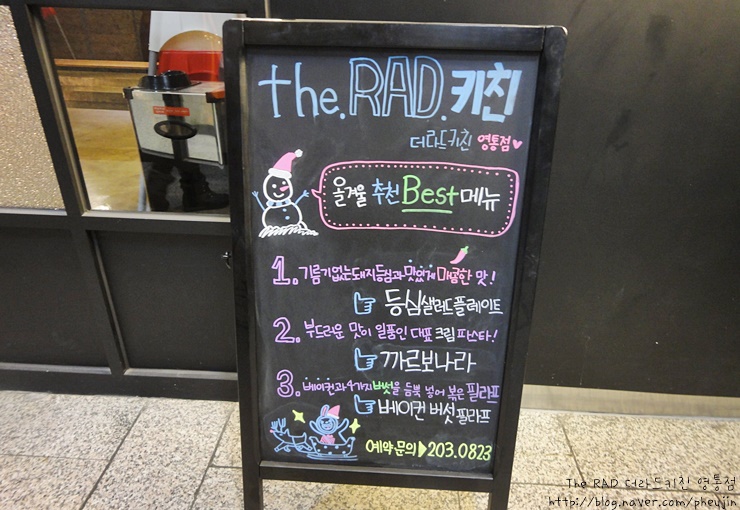 the.RAD.키친
더라드키친 영통점♥
올겨울 추천 Best 메뉴
1. 기름기없는돼지등심과 맛있게 매콤한 맛!
등심샐러드플레이트
2. 부드러운 맛이 일품인 대표 크림 파스타!
까르보나라
3. 베이컨과 4가지버섯을 듬뿍 넣어 볶은 필라프
베이컨 버섯 필라프
예약문의▶203.0823
The RAD 더라드키친 영통점
http://blog.naver.com/pheyjin